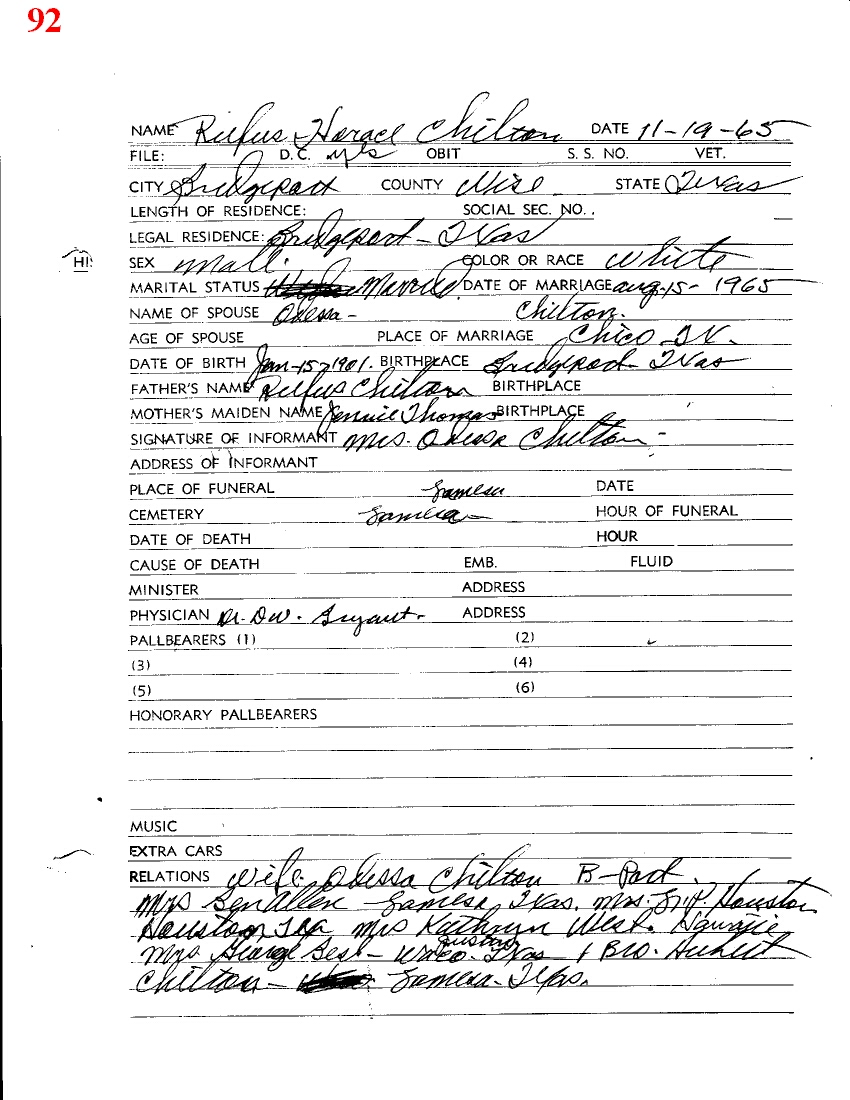 92
NAME Rufus Horace Chilton DATE 11-19-65
FILE: D.C. yes OBIT S. S. NO. VET.
CITY Bridgeport COUNTY Wise STATE Texas
LENGTH OF RESIDENCE: SOCIAL SEC. NO.
LEGAL RESIDENCE: Bridgeport - Texas
HI
SEX Male. COLOR OR RACE White
MARITAL STATUS Married DATE OF MARRIAGE Aug-15-1965
NAME OF SPOUSE Odessa - Chilton.
AGE OF SPOUSE PLACE OF MARRIAGE Chico TX.
DATE OF BIRTH Jan-15-1901. BIRTHPLACE Bridgeport Texas
FATHER'S NAME Rufus Chilton BIRTHPLACE
MOTHER'S MAIDEN NAME Jennie Thomas BIRTHPLACE
SIGNATURE OF INFORMANT Mrs. Odessa Chilton -
ADDRESS OF INFORMANT
PLACE OF FUNERAL Lamesa DATE
CEMETERY Lamesa HOUR OF FUNERAL
DATE OF DEATH HOUR
CAUSE OF DEATH EMB. FLUID
MINISTER ADDRESS
PHYSICIAN Dr. DW. Bryant. ADDRESS
PALLBEARERS (1) (2)
(3) (4)
(5) (6)
HONORARY PALLBEARERS
MUSIC
EXTRA CARS
RELATIONS Wife Odessa Chilton B-Port.
Mrs Allen - Lamesa, Texas. Mrs. Houston
Houston Mrs Kathryn West.
Mrs George - Texas 1 Bro.
Chilton - Lamesa - Texas.